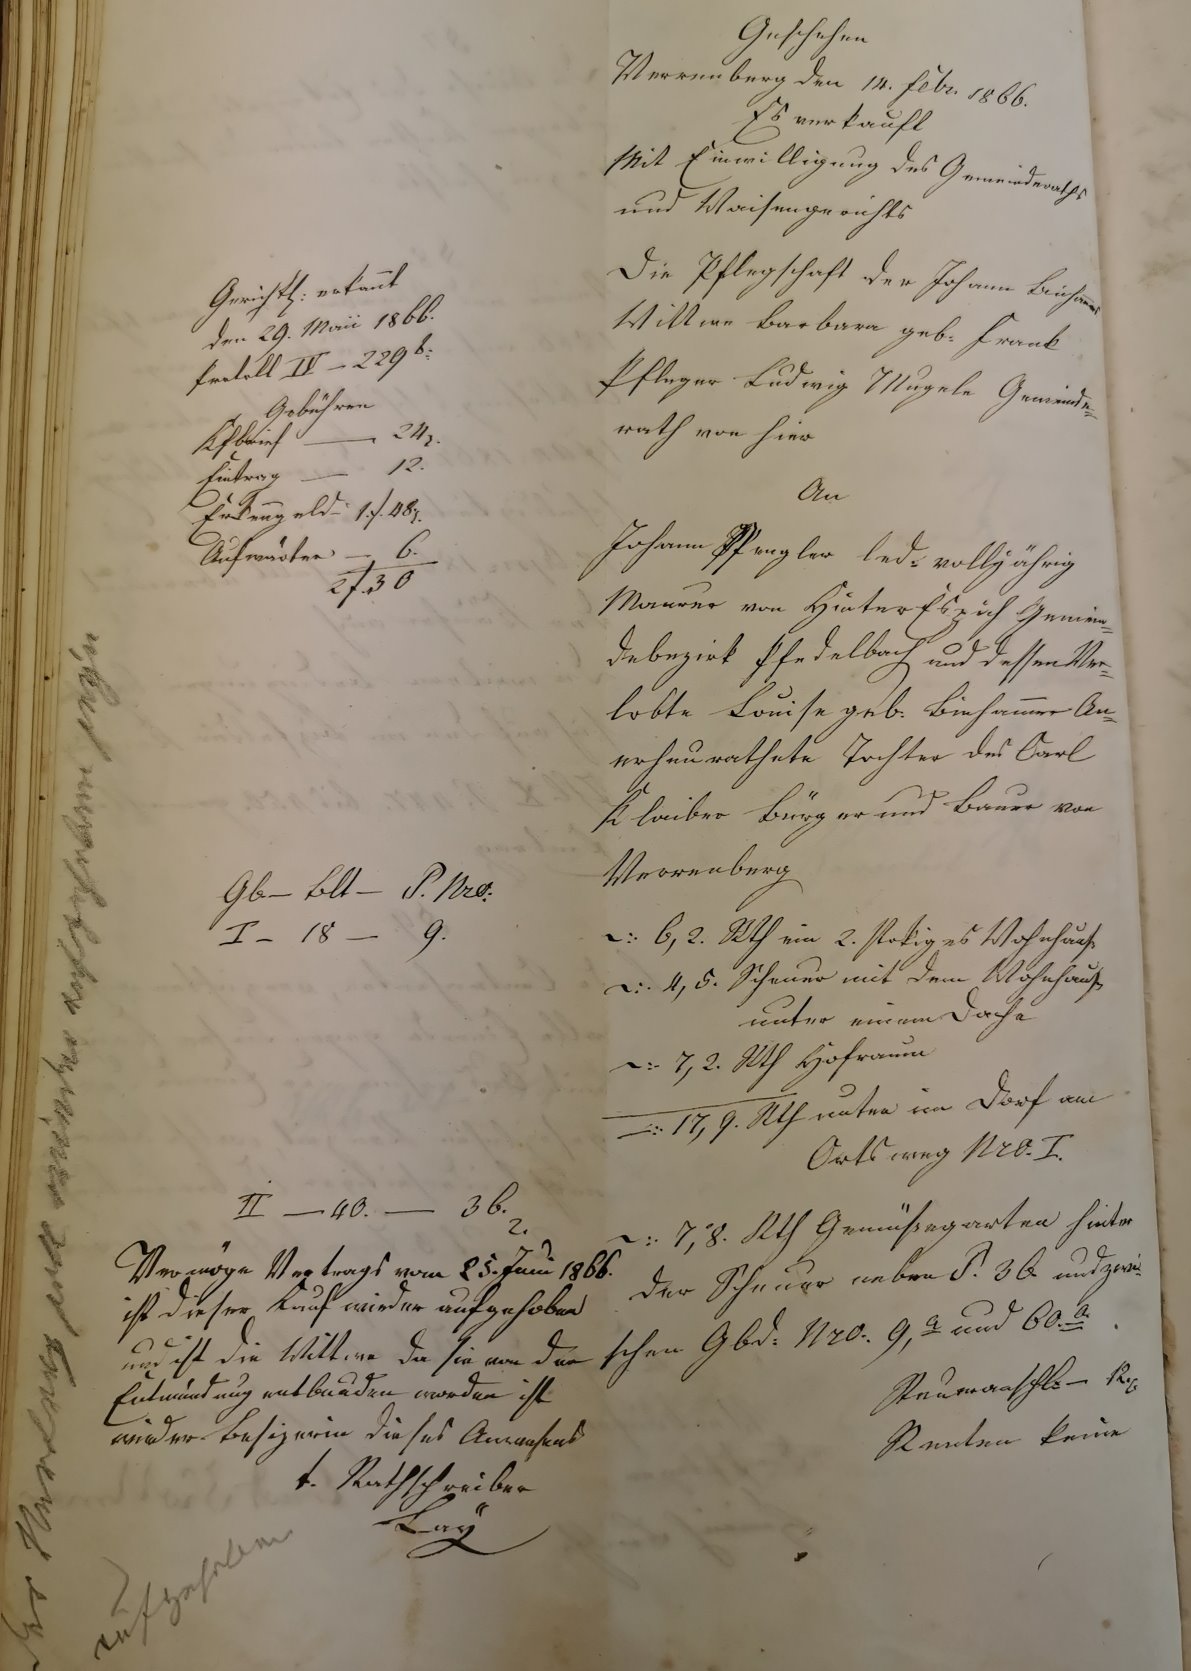 Geschehen
Verrenberg den 14. Febr. 1866.
Es verkauft
Mit Einwilligung des Gemeinderaths
und Waisengerichts
Die Pflegschaft der Johann
Wittwe Barbara geb. Frank
Pfleger Ludwig Mugele Gemeinde=
rath von hier
An
Johann Spengler led. volljährig
Maurer von HinterEspich Gemein=
debezirk Pfedelbach und dessen Ver=
lobte Louise geb. An=
erheurathete Tochter des Carl
Klaiber Bürger und Bauer von
Verrenberg
6,2. Rth ein 2. stokiges Wohnhaus
4,5. Scheuer mit dem Wohnhaus
unter einem Dache
7,2. Rth Hofraum
17,9. Rth unten im Dorf am
Ortsweg Nro. I.
7,8. Rth Gemüsegarten hinter
der Scheuer neben P. 36 und zwi=
schen Gbd: Nro. 9,a und 60.a.
Steueranschl. —
Renten keine
Gerichtl: erkannt
den 29. Maii 1866.
IV — 229 b:
Gebühren
Kfbrief — 24
Eintrag — 12.
1 f. 48
Aufwärter — 6.
2 f. 30
Gb — Blt — P. Nro:
I — 18 — 9.
II — 40. — 36.
2.
Vermöge Vertrags vom 25. Juni 1866.
ist dieser Kauf wieder aufgehoben
und ist die Wittwe da sie von der
Entmündung entbunden worden ist
wieder Besizerin dieses Anwesens
t. Rathschreiber
Lay
aufgehoben